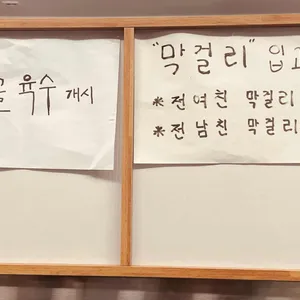 육수 개시
"막걸리" 입고
※전여친 막걸리
※전남친 막걸리